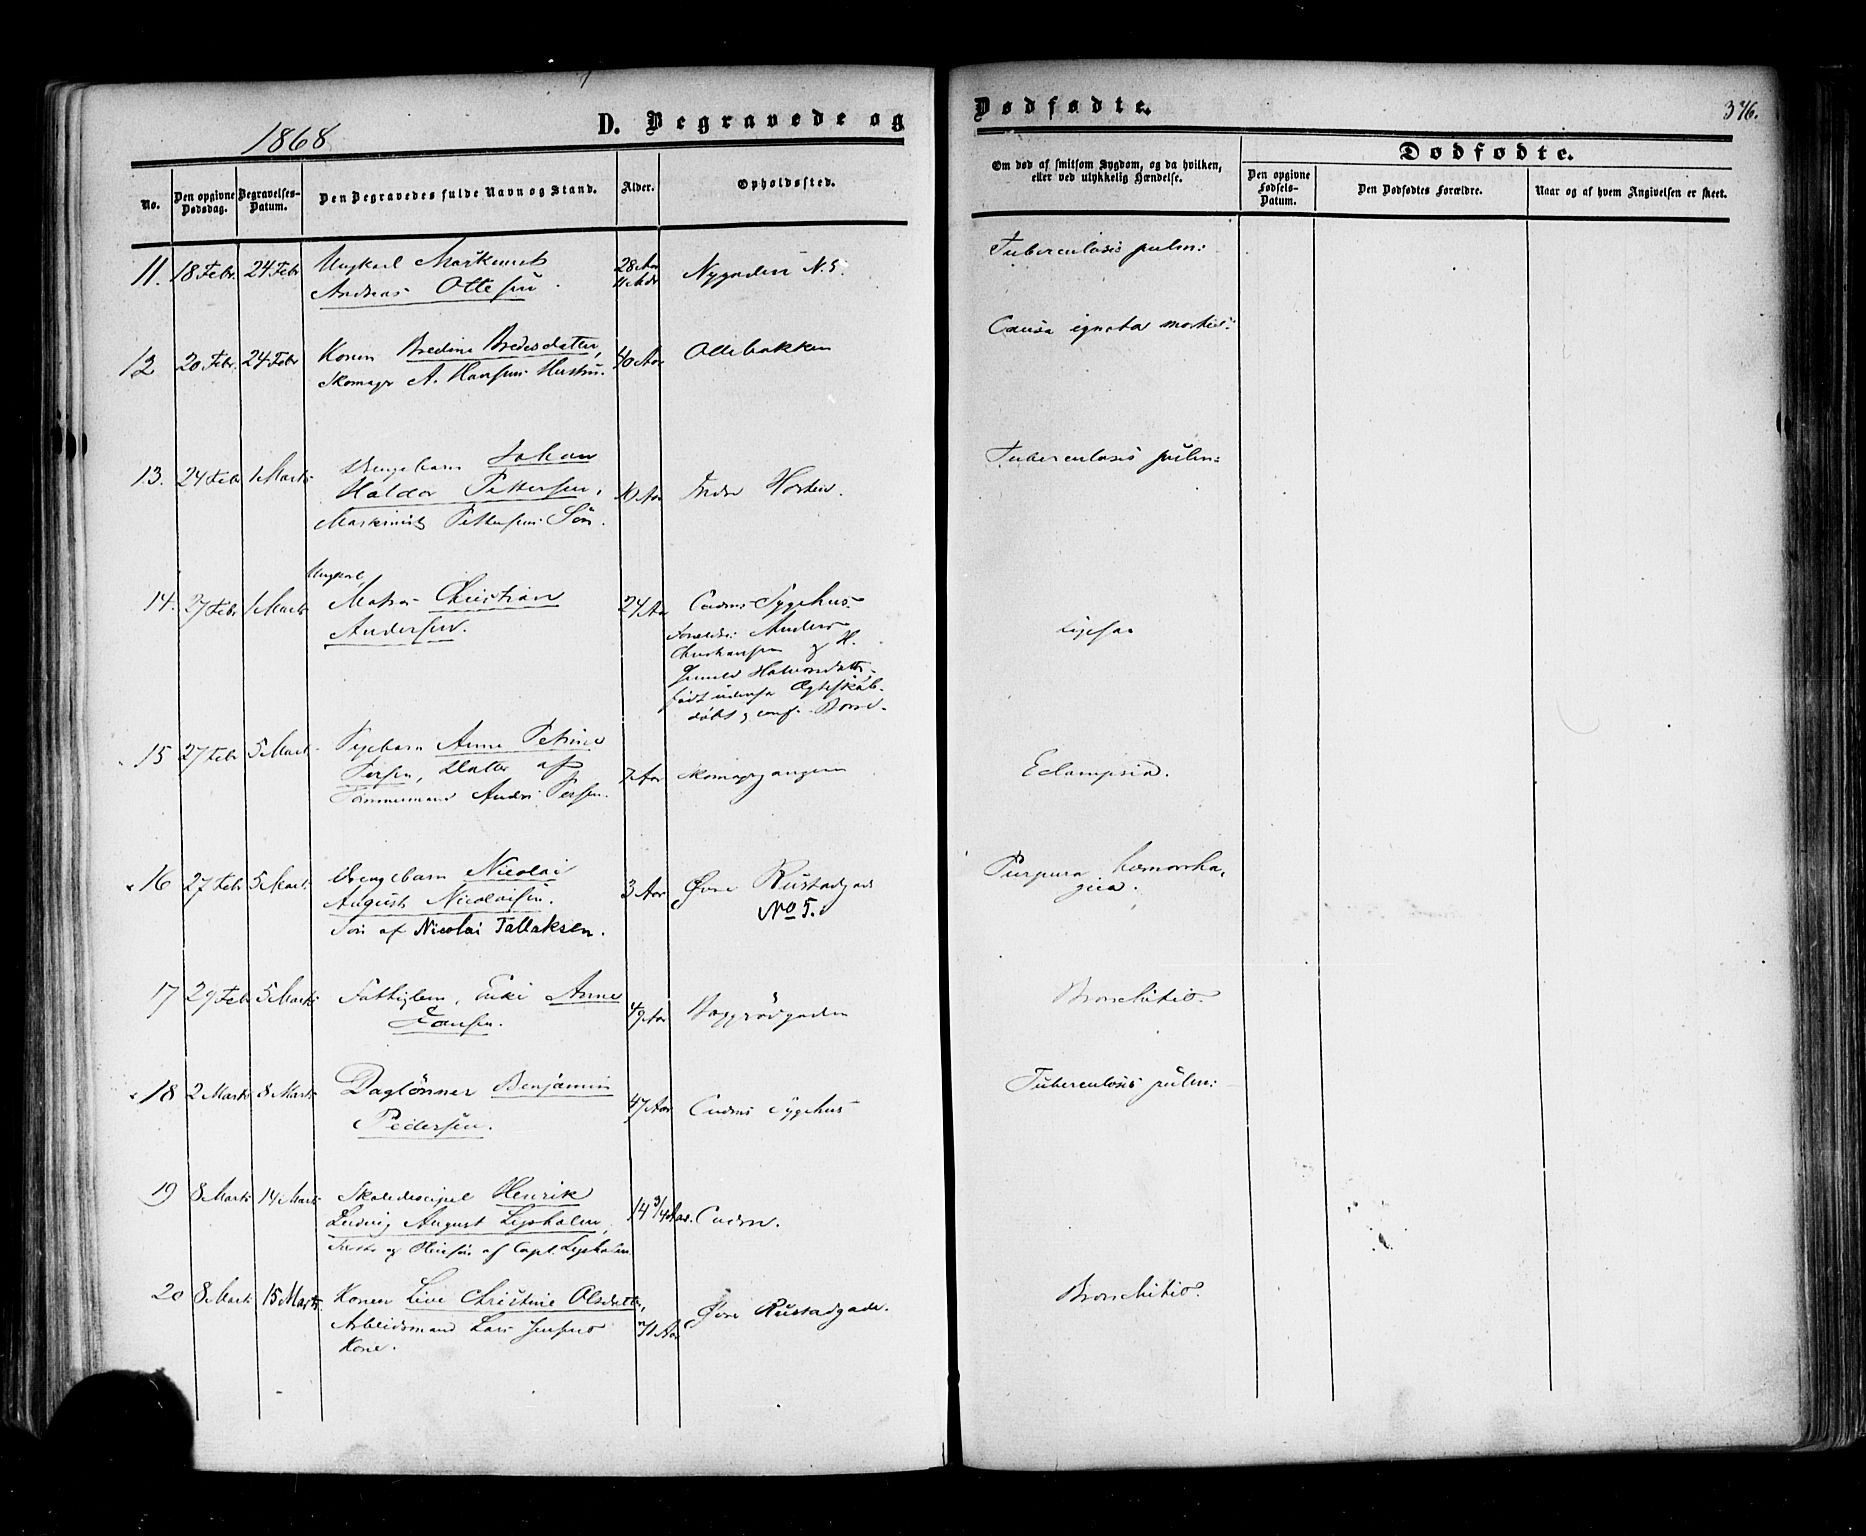 1868
D. Begravede og
Dødfødte.
346.
No.
Den opgivne Dødsdag.
Begravelses-Datum.
Den Begravedes fulde Navn og Stand.
Alder.
Opholdssted.
Om død af smitsom Sygdom, og da hvilken,
eller ved ulykkelig Hændelse.
Dødfødte.
Den opgivne Fødsels-Datum.
Den Dødfødtes Forældre.
Naar og af hvem Angivelsen er skeet.
11. 18 Febr 24 Febr Ungkarl Maskinist 28 Aar Nygaden N. 5. Tuberculosis pulm:
Andreas Ottesen.
12 20 Febr. 24 Febr Konen Bredine Bredesdatter, 40 Aar Ollebakken Causa ignota mortis:
Skomagr A. Hansens Hustru.
13. 24 Febr 1 Marts Drengebarn Johan Tuberculosis pulm:
Haldor Pettersen, Indre Horten.
Maskinist Pettersens Søn.
14. 27 Febr 1 Marts Ungkarl,
Matros Christian 24 Aar Carljohans Sygehus
Andersen.
Forældre: Anders
Christiansen og
Halvorsdatter
født udenfor Ægteskab.
døbt og conf. Borre.
15 27 Febr 5 Marts Pigebarn Anne Petrine
Persen, Datter af 7 Aar Skomagergangen Eclampsia.
Tømmermand Andr: Persen.
16 27 Febr 5 Marts Drengebarn Nicolai 3 Aar Øvre Rustadgade Purpura hæmorrha-
August Nicolaisen. No 5. gica.
Søn af Nicolai Tallaksen.
17 29 Feb 5 Marts Fattiglem, Enke Anne 49 Aar Bronchitis.
Hansen.
18 2 Marts 8 Marts Daglønner Benjamin 47 Aar Sygehus Tuberculosis pulm:
Pedersen.
19 8 Marts 14 Marts Skolediscipel Henrik 14 3/4 Aar.
Ludvig August Lysholm,
og af Capt. Lysholm
20 8 Marts 15 Marts Konen Live Christine Olsdatter, 71 Aar Øvre Rustadgade. Bronchitis.
Arbeidsmand Lars Jensens
Kone.